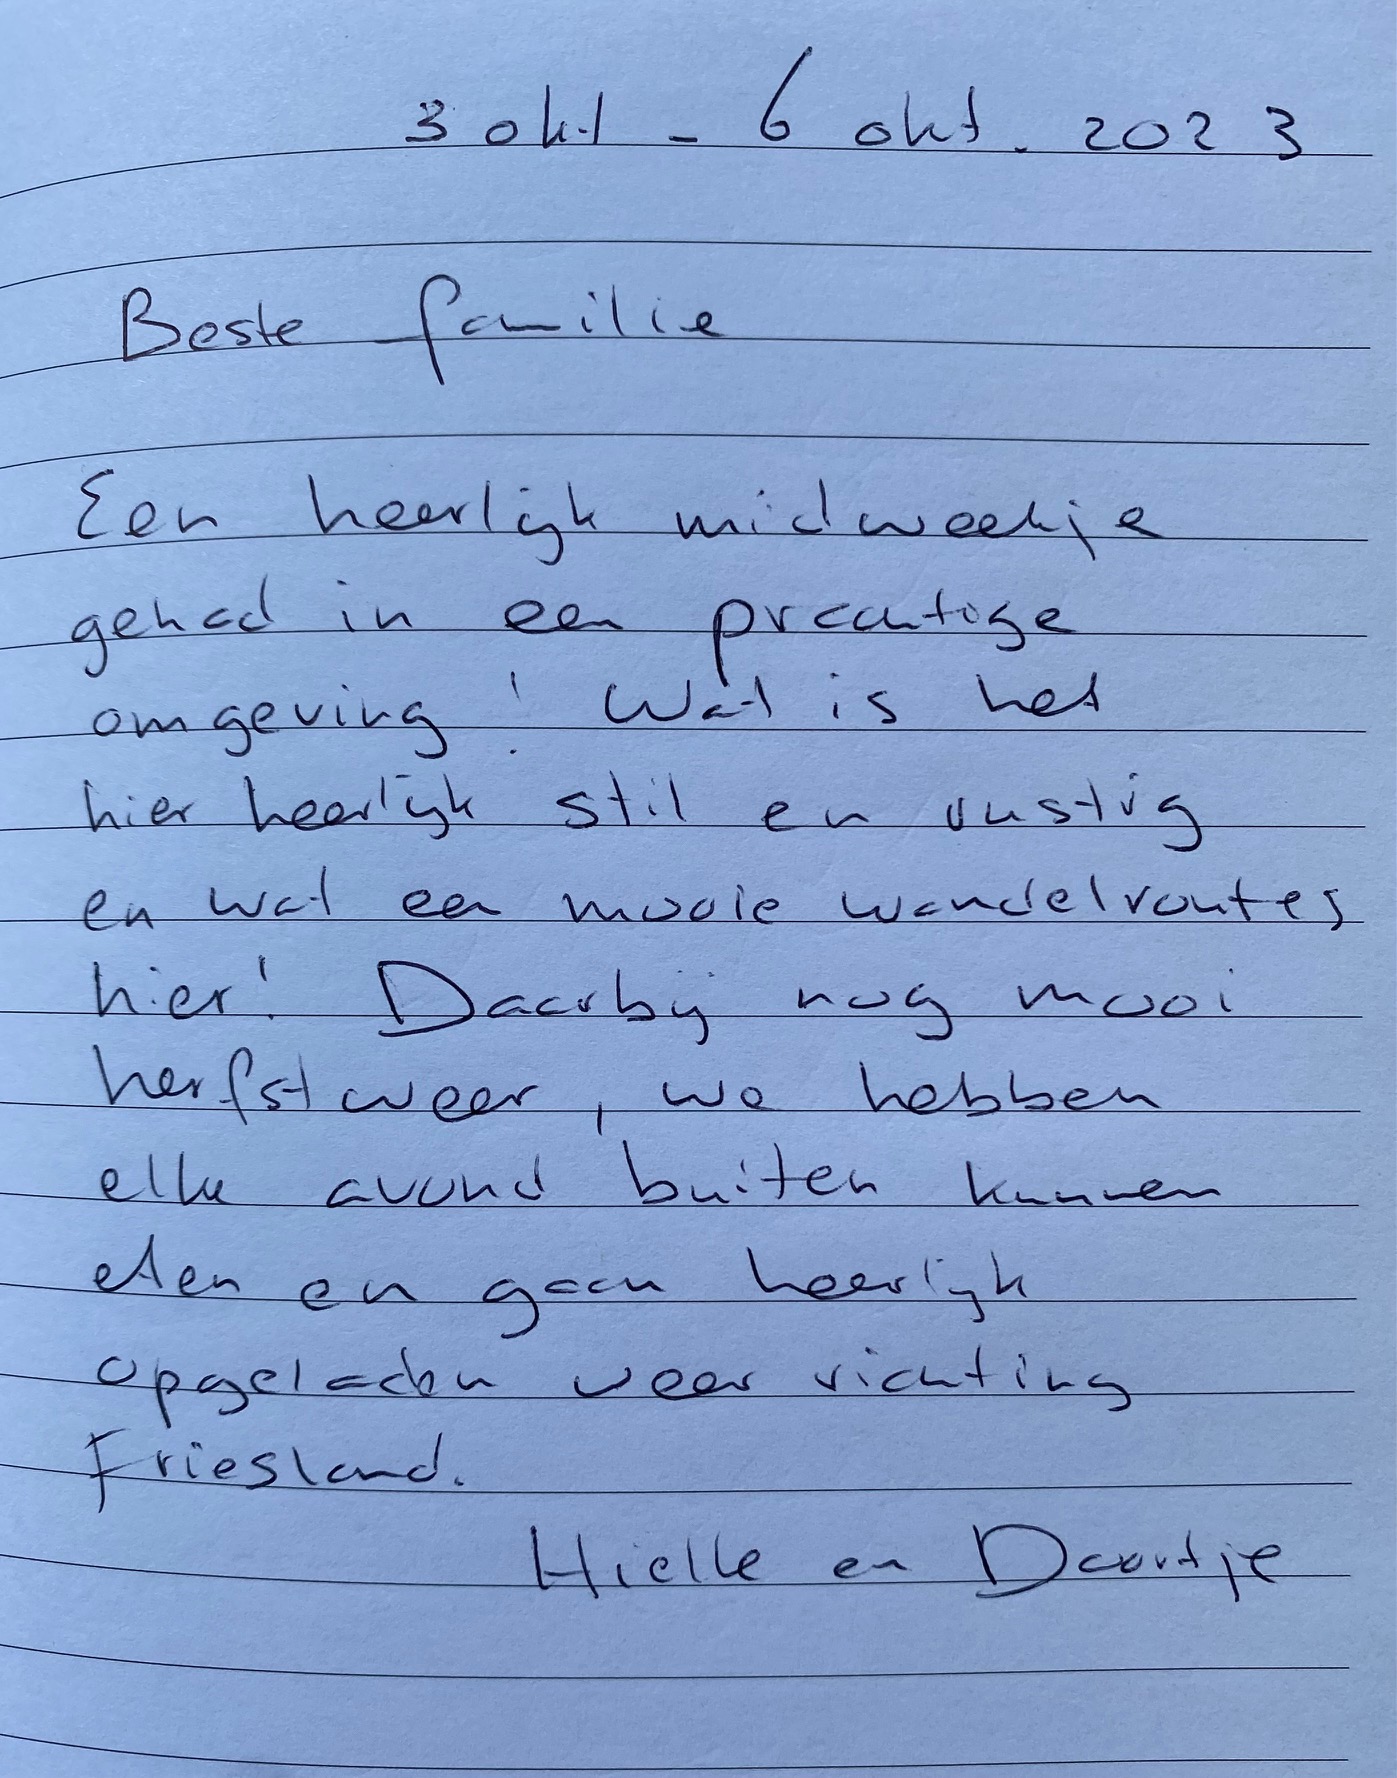 3 okt - 6 okt. 2023
Beste familie
Een heerlijk midweekje
gehad in een prachtige
omgeving! Wat is het
hier heerlijk stil en rustig
en wat een mooie wandelroutes
hier! Daarbij nog mooi
herfstweer, we hebben
elke avond buiten kunnen
eten en gaan heerlijk
opgeladen weer richting
Friesland.
Hielke en Daartje